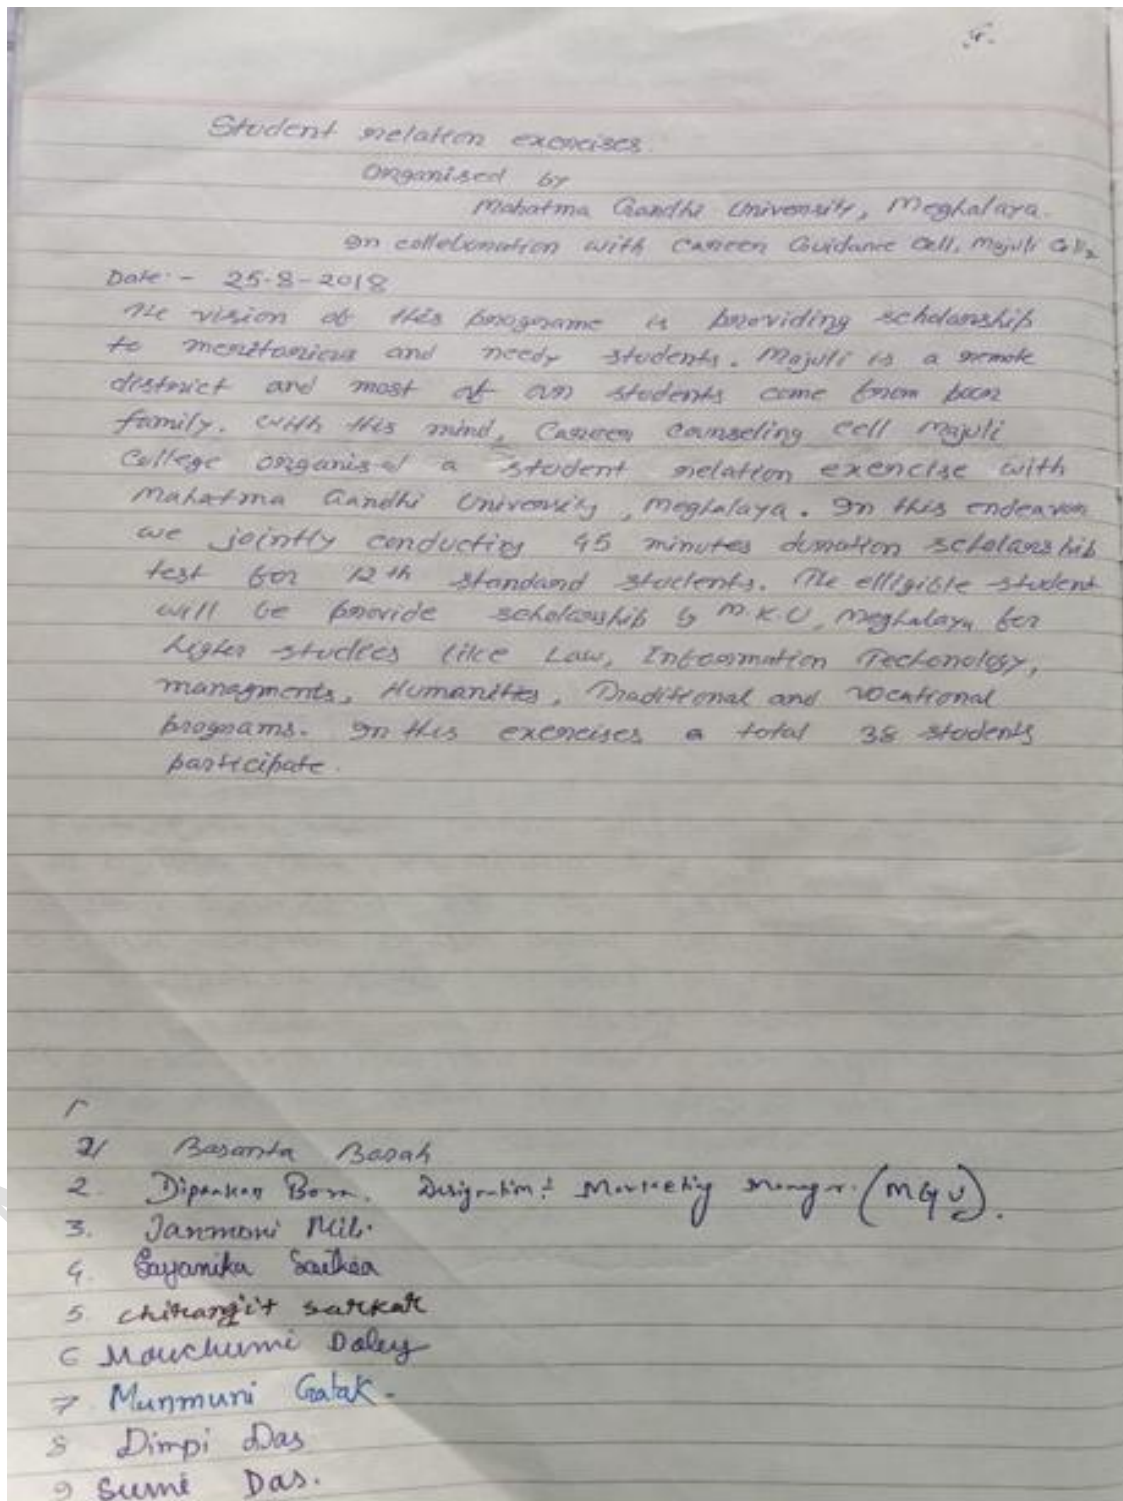 Student relation exercises.
Organised by
Mahatma Gandhi University, Meghalaya.
In colleboration with Career Guidance Cell, Majuli
Date:- 25-8-2018
The vision of this programe is providing scholarship
to meritorious and needy students. Majuli is a remote
district and most of our students come from poor
family. With this mind, Career Counseling Cell Majuli
College organised a student relation exercise with
Mahatma Gandhi University, Meghalaya. In this endeavor
we jointly conducting 45 minutes duration scholarship
test for 12th standard students. The elligible student
will be provide scholarship by M.K.U, Meghalaya for
higher studies like Law, Information Techonology,
managments, Humanities, Traditional and vocational
programs. In this exercises a total 38 students
participate.
2/ Basanta Borah
2. Dipankar Bora. Designation: Marketing Manager. (MGU).
3. Janmoni Mili.
4. Sayanika Saikia
5 chiranjit sarkar
6 Mouchumi Doley
7 Munmuni Gatak-
8 Dimpi Das
9 Sumi Das.